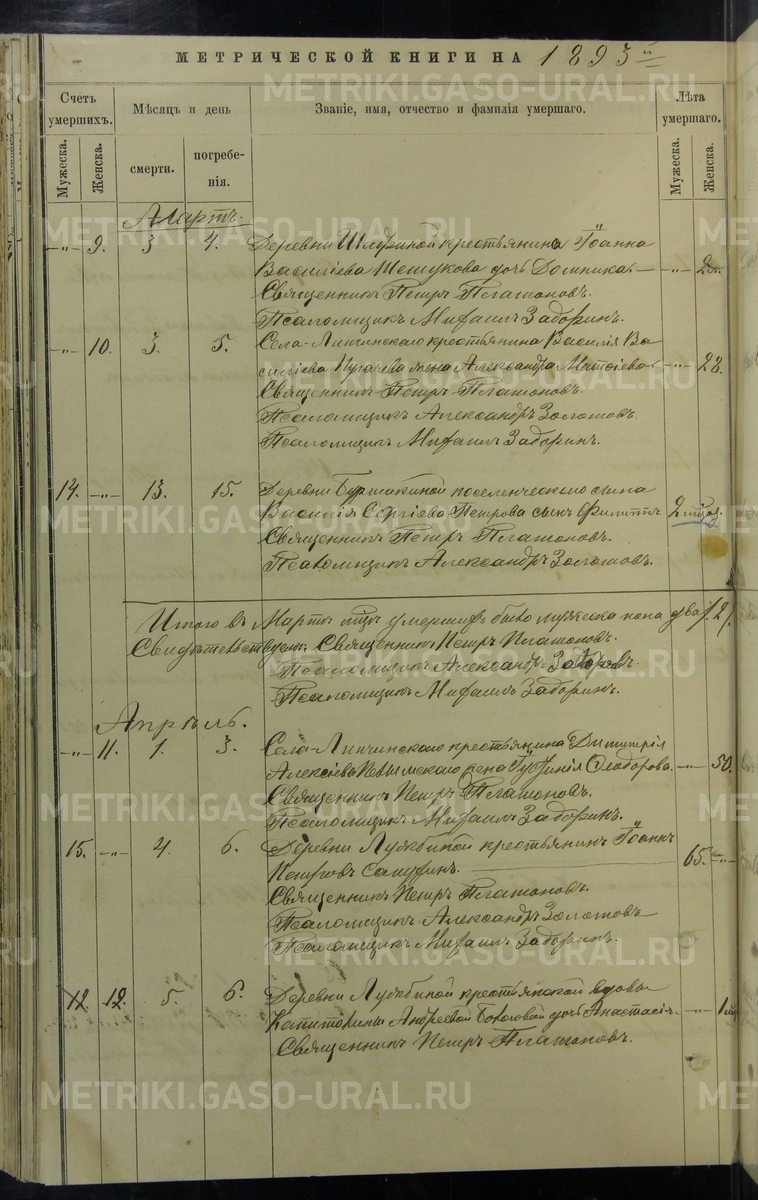 МЕТРИЧЕСКОЙ КНИГИ НА 1893 й
METRIKI.GASO-URAL.RU
Счетъ умершихъ.
Мѣсяцъ и день
Званіе, имя, отчество и фамилія умершаго.
Лѣта умершаго.
Мужеска.
Женска.
смерти.
погребенія.
Мужеска.
Женска.
Мартъ.
-"- 9. 3 4. Деревни крестьянина Іоанна
Василіева Шешукова дочь Домника. -"-
Священникъ Петръ Платоновъ.
Псаломщикъ Михаилъ Задоринъ.
-"- 10. 3. 5. Села Липчинскаго крестьянина Василія Ва
силіева Пугачева жена Александра -"- 28.
Священникъ Петръ Платоновъ.
Псаломщикъ Александръ Золотовъ.
Псаломщикъ Михаилъ Задоринъ.
14. -"- 13. 15. Деревни поселенческаго сына
Василія Сергіева Петрова сынъ Филиппъ 2
Священникъ Петръ Платоновъ.
Псаломщикъ Александръ Золотовъ.
Итого въ Мартѣ умершихъ было мужеска пола два /2/.
Свидѣтельствуютъ: Священникъ Петръ Платоновъ.
Псаломщикъ Александръ
Псаломщикъ Михаилъ Задоринъ.
Апрѣль.
-"- 11. 1. 3. Села Липчинскаго крестьянина Димитрія
Алексіева жена Ѳеодорова. -"- 50.
Священникъ Петръ Платоновъ.
Псаломщикъ Михаилъ Задоринъ.
15. -"- 4. 6. Деревни крестьянинъ Іоаннъ
65. -"-
Священникъ Петръ Платоновъ.
Псаломщикъ Александръ Золотовъ
Псаломщикъ Михаилъ Задоринъ.
12. 5. 6. Деревни крестьянской вдовы
Капитолины Андреевой дочь Анастасія. -"- 1
Священникъ Петръ Платоновъ.